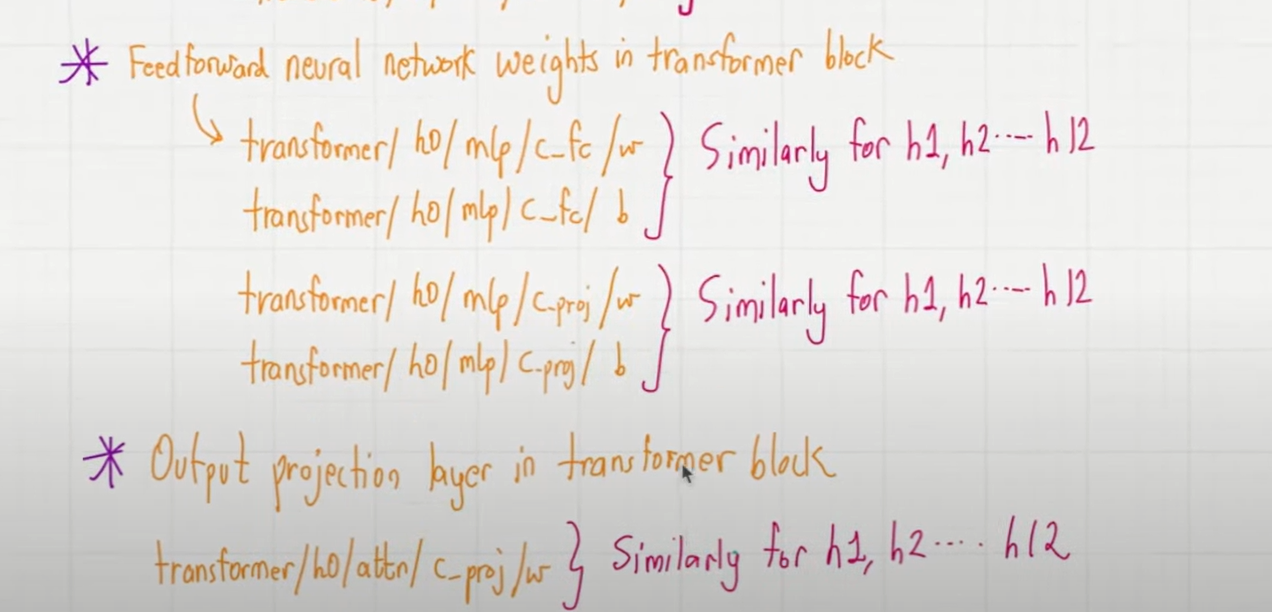 * Feedforward neural network weights in transformer block
transformer/ h0/ mlp/c_fc /w } Similarly for h1, h2---- h12
transformer/ h0/ mlp/ c_fc/ b
transformer/ h0/ mlp/c-proj /w } Similarly for h1, h2---- h12
transformer/ h0/ mlp/ c-proj/ b
* Output projection layer in transformer block
transformer/h0/attn/ c_proj/w } Similarly for h1, h2.... h12